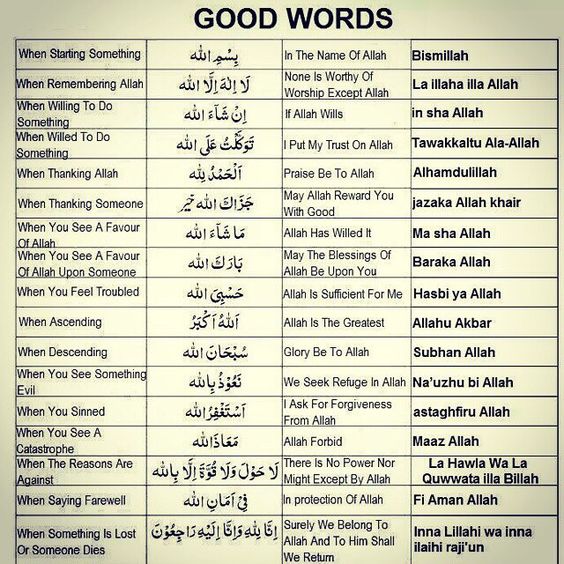 GOOD WORDS
When Starting Something بِسْمِ اللّٰه In The Name Of Allah Bismillah
When Remembering Allah لَا اِلٰهَ اِلَّا اللّٰه None Is Worthy Of Worship Except Allah La illaha illa Allah
When Willing To Do Something اِنْ شَآءَ اللّٰه If Allah Wills in sha Allah
When Willed To Do Something تَوَكَّلْتُ عَلَى اللّٰه I Put My Trust On Allah Tawakkaltu Ala-Allah
When Thanking Allah اَلْحَمْدُ لِلّٰه Praise Be To Allah Alhamdulillah
When Thanking Someone جَزَاكَ اللّٰه خَيْر May Allah Reward You With Good jazaka Allah khair
When You See A Favour Of Allah مَا شَآءَ اللّٰه Allah Has Willed It Ma sha Allah
When You See A Favour Of Allah Upon Someone بَارَكَ اللّٰه May The Blessings Of Allah Be Upon You Baraka Allah
When You Feel Troubled حَسْبِيَ اللّٰه Allah Is Sufficient For Me Hasbi ya Allah
When Ascending اَللّٰهُ اَكْبَرُ Allah Is The Greatest Allahu Akbar
When Descending سُبْحَانَ اللّٰه Glory Be To Allah Subhan Allah
When You See Something Evil نَعُوْذُ بِاللّٰه We Seek Refuge In Allah Na’uzhu bi Allah
When You Sinned اَسْتَغْفِرُ اللّٰه I Ask For Forgiveness From Allah astaghfiru Allah
When You See A Catastrophe مَعَاذَ اللّٰه Allah Forbid Maaz Allah
When The Reasons Are Against لَا حَوْلَ وَلَا قُوَّةَ اِلَّا بِاللّٰه There Is No Power Nor Might Except By Allah La Hawla Wa La Quwwata illa Billah
When Saying Farewell فِيْ اَمَانِ اللّٰه In protection Of Allah Fi Aman Allah
When Something Is Lost Or Someone Dies اِنَّا لِلّٰهِ وَاِنَّا اِلَيْهِ رَاجِعُوْنَ Surely We Belong To Allah And To Him Shall We Return Inna Lillahi wa inna ilaihi raji'un